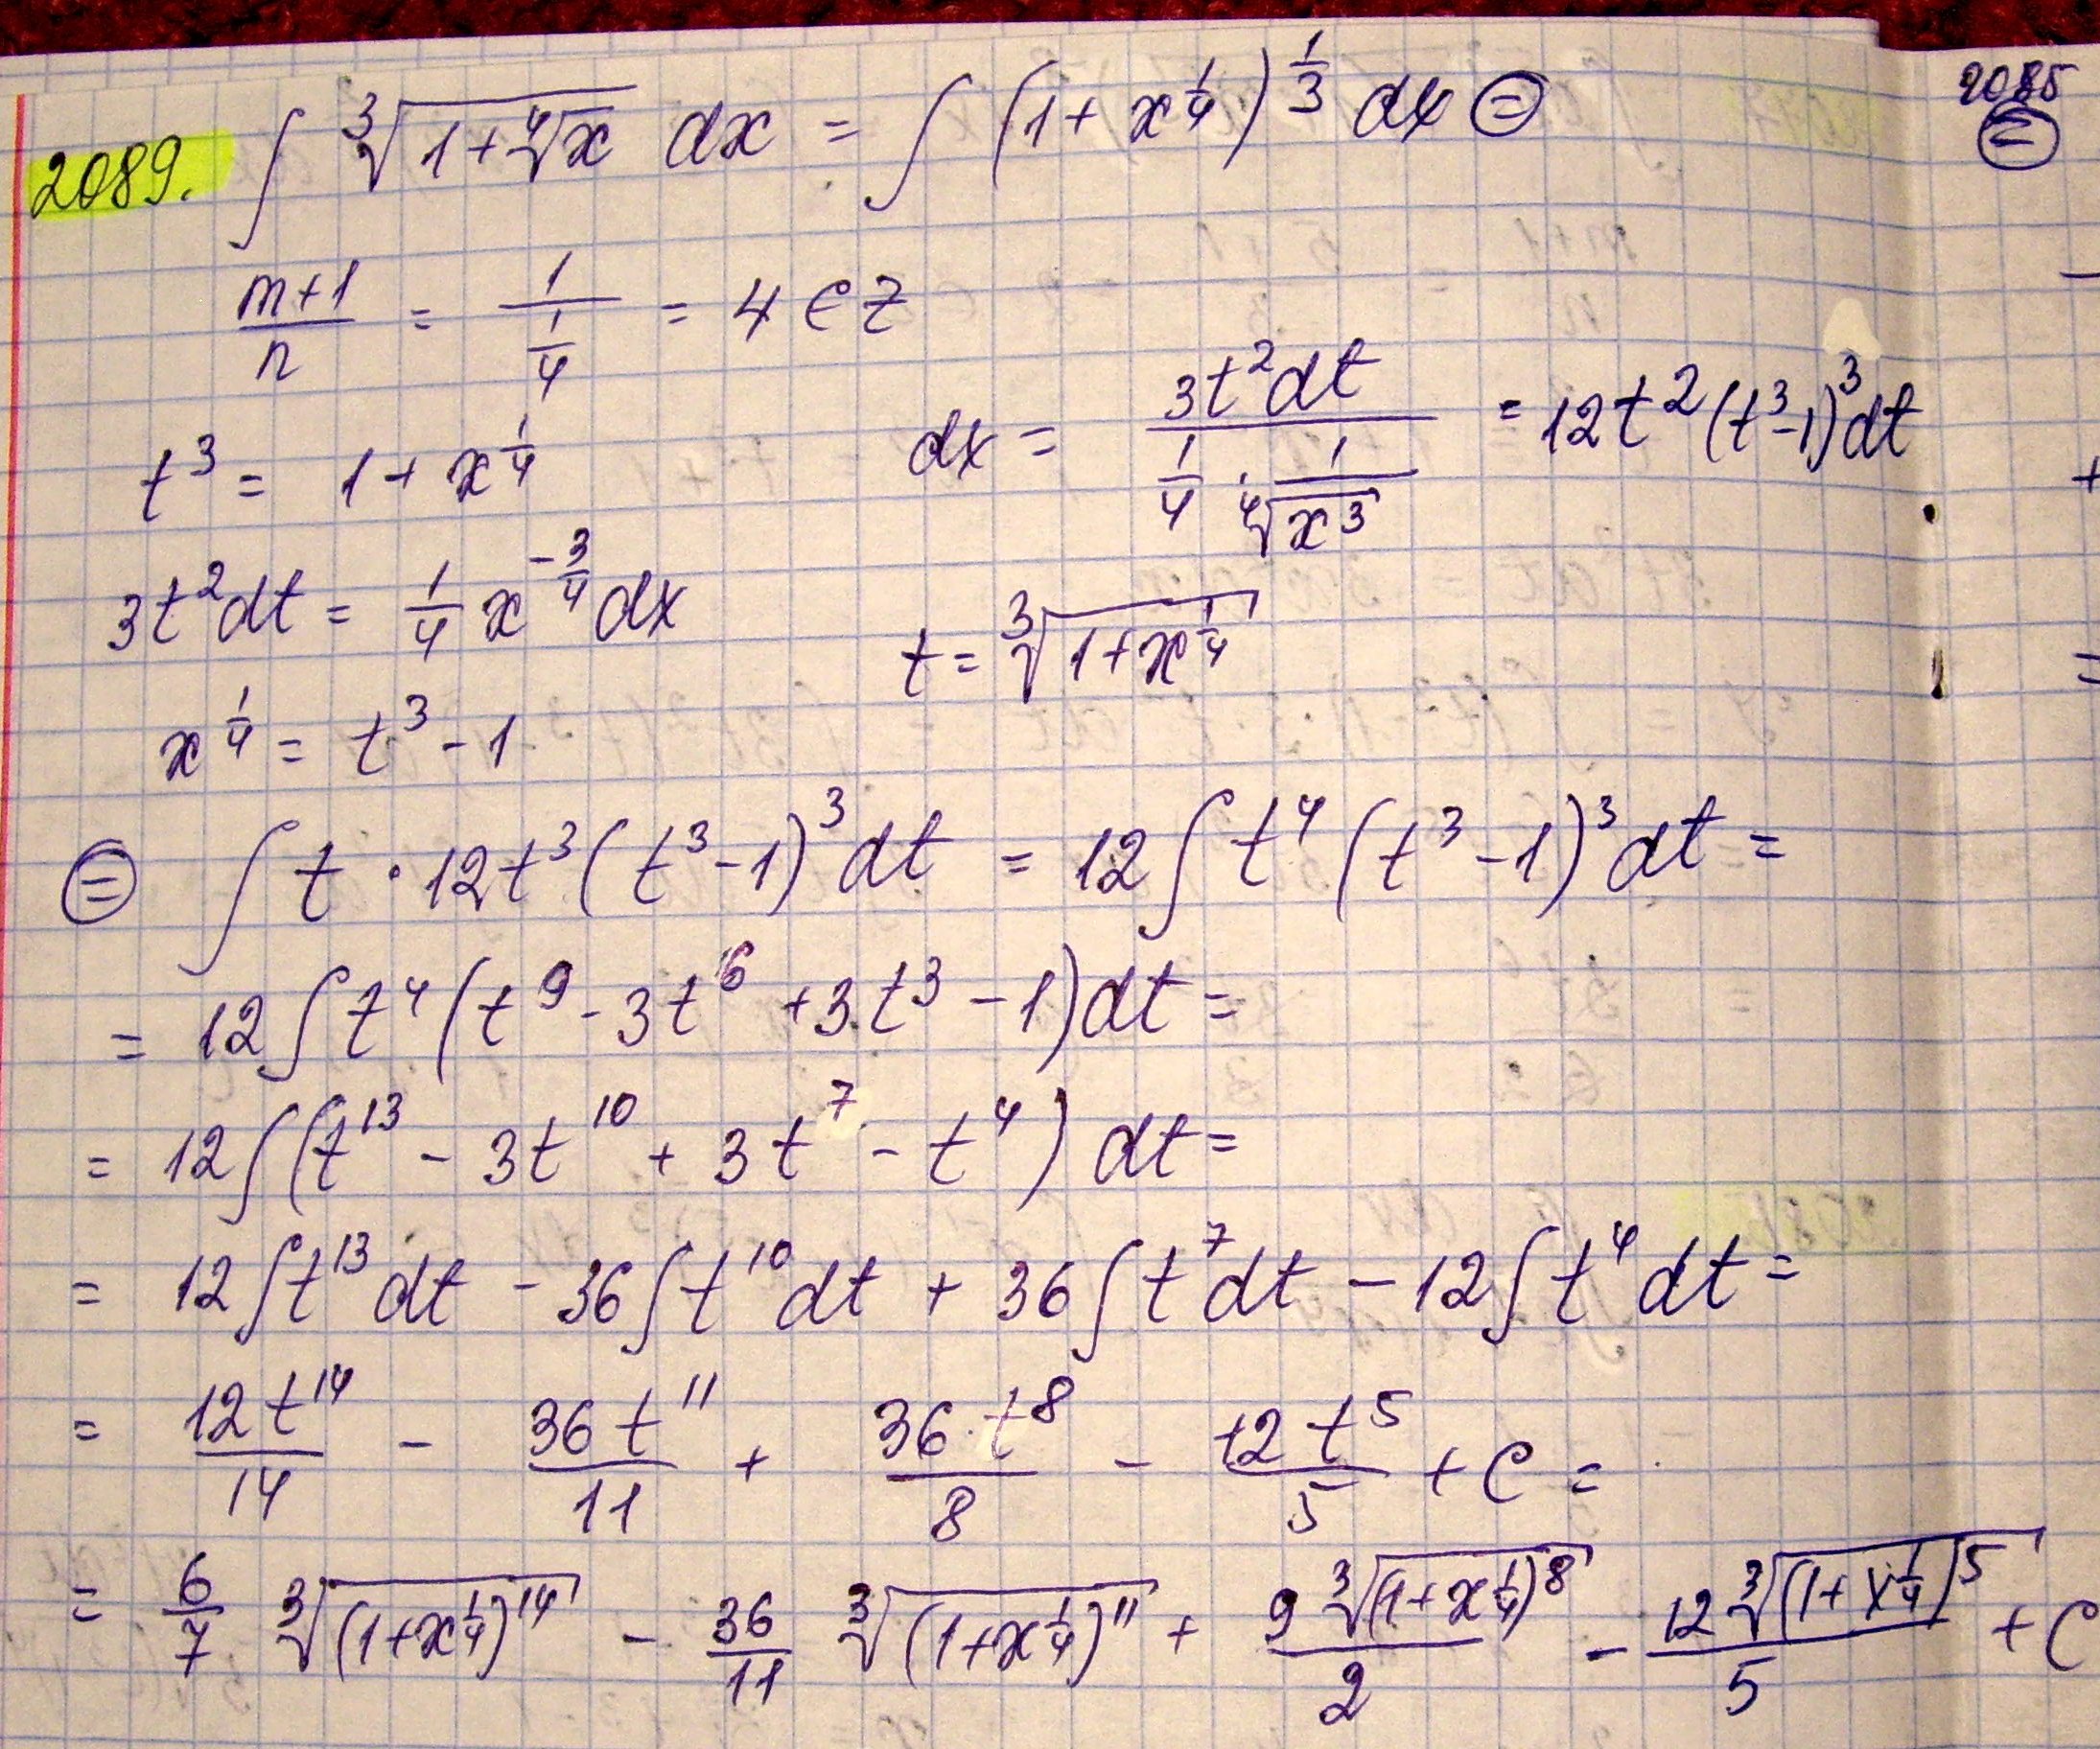 2089. ∫ ∛(1+∜x) dx = ∫ (1+x^(1/4))^(1/3) dx ⊜
(m+1)/n = 1/(1/4) = 4 ∈ Z
t³ = 1+x^(1/4)
dx = 3t²dt / (1/4 · 1/∜(x³)) = 12t²(t³-1)³dt
3t²dt = 1/4 x^(-3/4) dx
t = ∛(1+x^(1/4))
x^(1/4) = t³-1
⊜ ∫ t · 12t³(t³-1)³dt = 12∫t⁴(t³-1)³dt =
= 12∫t⁴(t⁹-3t⁶+3t³-1)dt =
= 12∫(t¹³ - 3t¹⁰ + 3t⁷ - t⁴) dt =
= 12∫t¹³dt - 36∫t¹⁰dt + 36∫t⁷dt - 12∫t⁴dt =
= 12t¹⁴/14 - 36t¹¹/11 + 36t⁸/8 - 12t⁵/5 + C =
= 6/7 ∛((1+x^(1/4))¹⁴) - 36/11 ∛((1+x^(1/4))¹¹) + 9∛((1+x^(1/4))⁸)/2 - 12∛((1+x^(1/4))⁵)/5 + C
2085
⊜
-
+
=